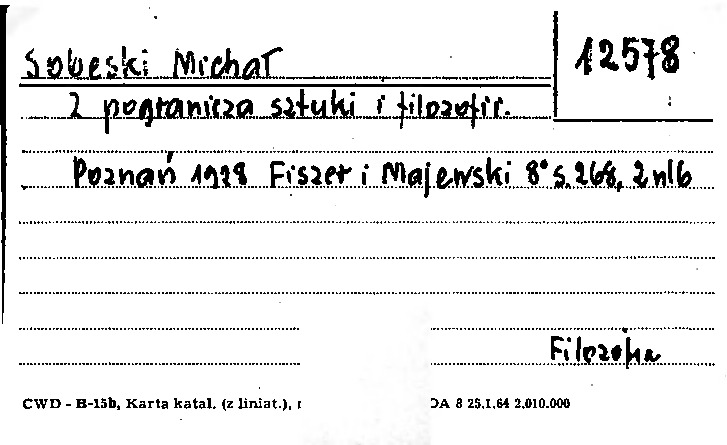 Sobeski Michał
12578
Z pogranicza sztuki i filozofii.
Poznań 1928 Fiszer i Majewski 8° s. 268, 2 nlb
Filozofia
CWD - B-15b, Karta katal. (z liniat.), DA 8 25.I.64 2.010.000